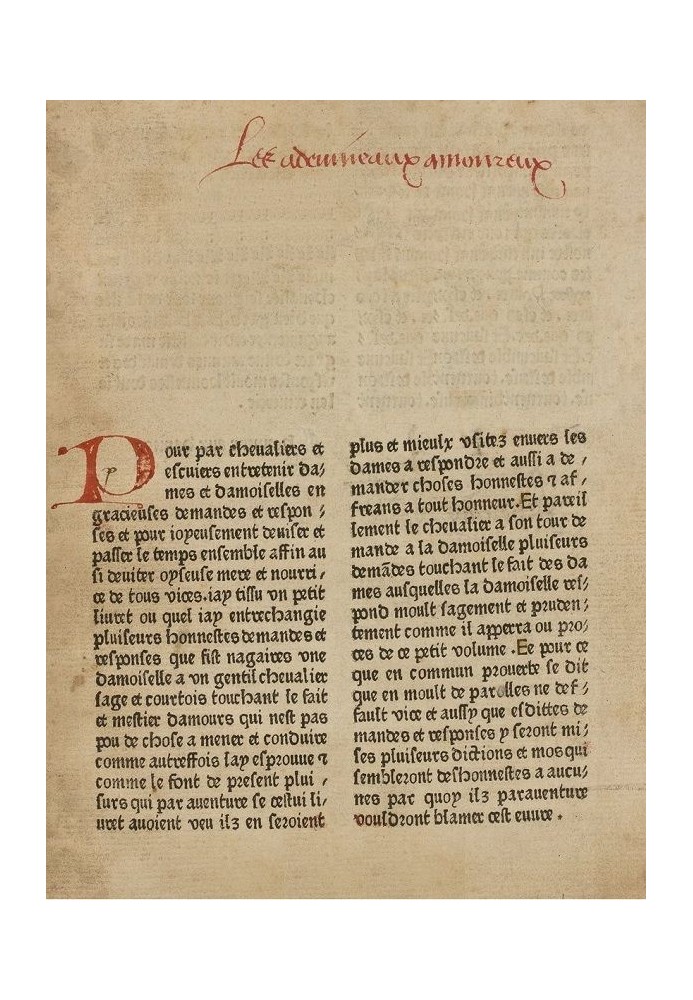 Les adeuineaux amoureux
Pour par cheualiers et
escuiers entretenir da/
mes et damoiselles en
gracieuses demandes et respon /
ses et pour ioyeusement deuiser et
passer le temps ensemble affin au
si deuiter oyseuse mere et nourri /
ce de tous vices. iay tissu vn petit
liuret ou quel iay entrechangie
pluiseurs honnestes demandes et
responses que fist nagaires vne
damoiselle a vn gentil cheualier
sage et courtois touchant le fait
et mestier damours qui nest pas
pou de chose a mener et conduire
comme autreffois lay esprouue ⁊
comme le font de present plui /
surs qui par auenture se cestui li/
uret auoient veu ilz en seroient
plus et mieulx vsitez enuers les
dames a respondre et aussi a de /
mander choses honnestes ⁊ af /
freans a tout honneur. Et pareil
lement le cheualier a son tour de
mande a la damoiselle pluiseurs
demādes touchant le fait des da
mes ausquelles la damoiselle res/
pond moult sagement et pruden/
tement comme il apperra ou pro/
ces de ce petit volume . Ee pour ce
que en commun prouerbe se dit
que en moult de parolles ne def /
fault vice et aussy que esdittes de
mandes et responses y seront mi/
ses pluiseurs dictions et mos qui
sembleront deshonnestes a aucu/
nes par quoy ilz parauenture
vouldront blamer cest euure .